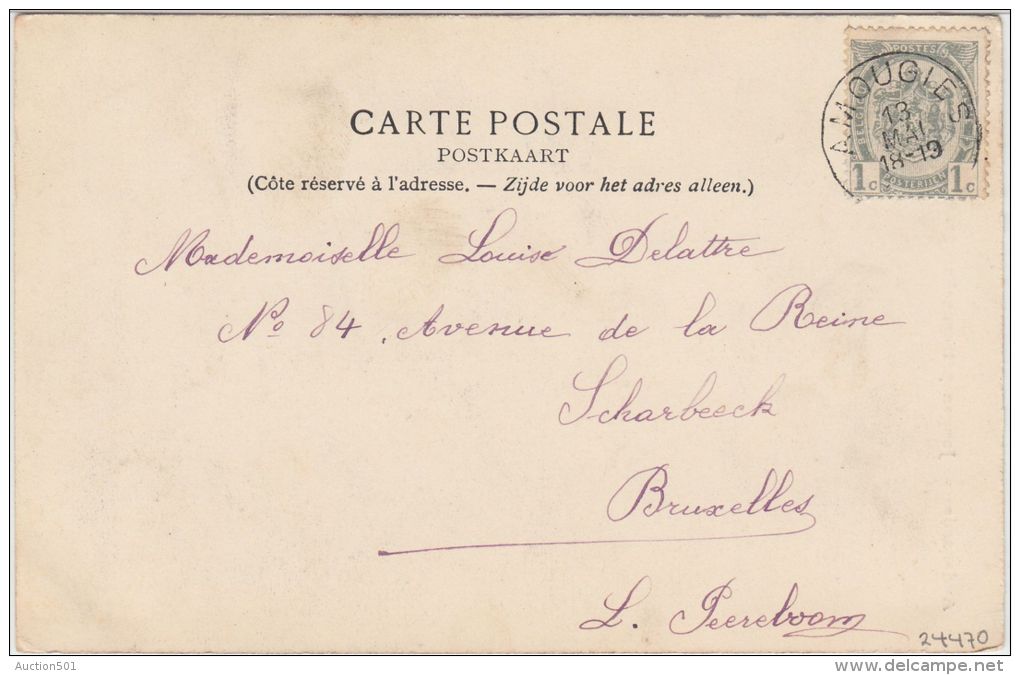 CARTE POSTALE
POSTKAART
(Côte réservé à l'adresse. — Zijde voor het adres alleen.)
POSTES
AMOUGIES
13
MAI
18-19
1c POSTERIJEN 1c
Mademoiselle Louise Delattre
No 84, Avenue de la Reine
Scharbeeck
Bruxelles
L. Peereboom
24470
Auction501
delcampe.net